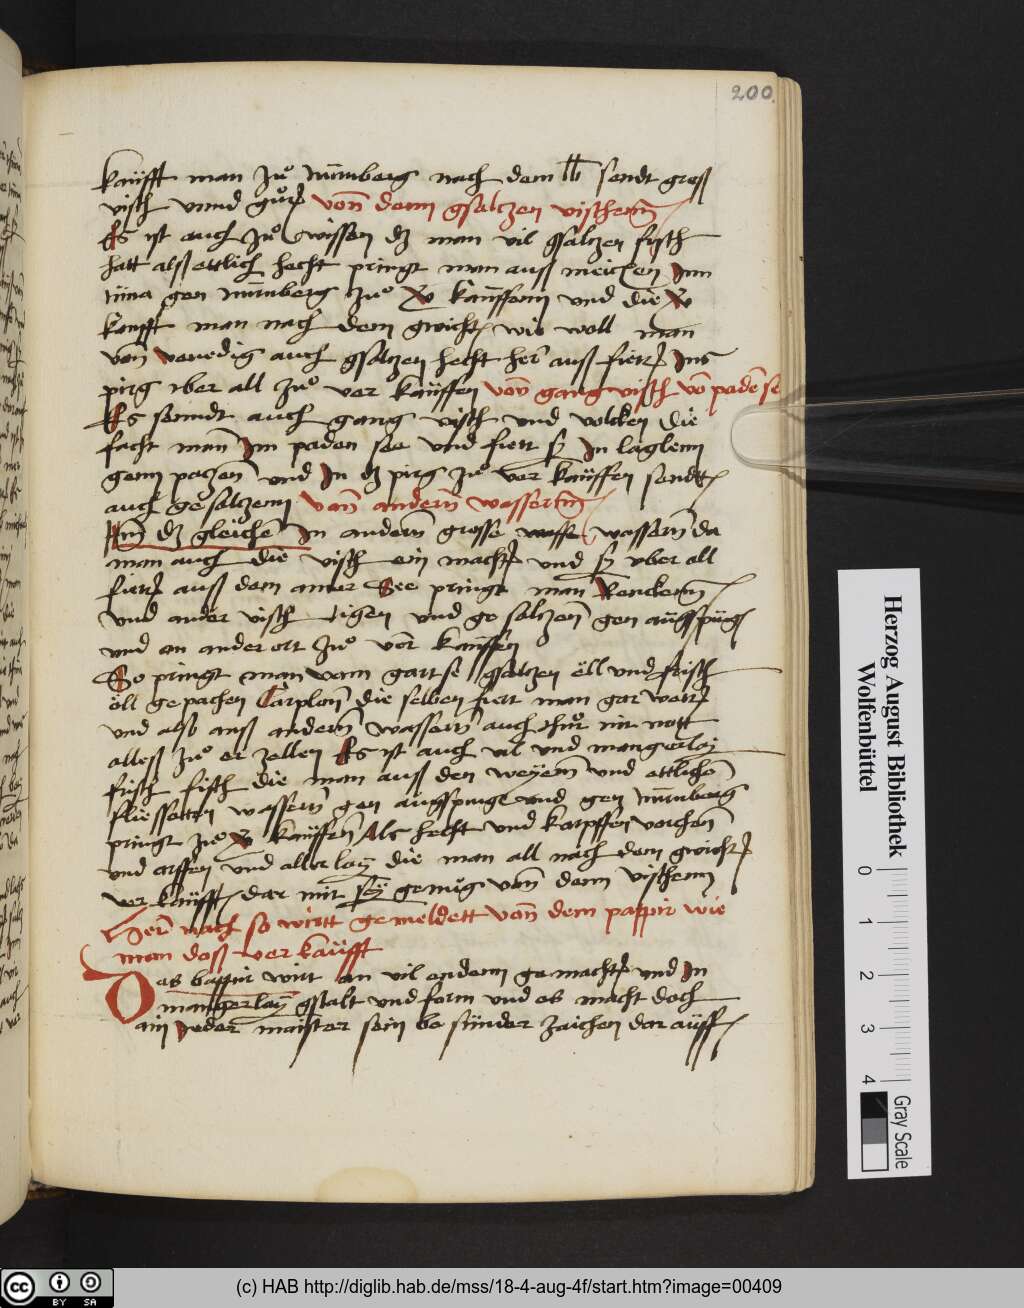 200
kaufft man zů nurmberg nach dem lb sendt groß
visch vnnd gůt vonn denn gsaltzen vischenn
Es ist auch zů wissen dz man vil gsaltzen fisch
hatt alß ettlich hecht pringt man auss meichen Inn
gen nurmberg zů kauffenn vnd die
kaufft man nach dem gwicht wie woll man
von venedig auch gsaltzen hecht her auss fiert Inß
pirg vber all zů ver kauffen vonn gang visch vo poden se
Es senndt auch gang visch vnd volcken die
facht man Im poden see vnd fiert sy In laglenn
genn potzen vnd In dz pirg zů ver kauffen sendt
auch gesaltzenn vonn andern wassernn
Inn dz gleichen In andern grosse wasse wassern da
man auch die visch ein macht vnd sy vber all
fiert auss dem amer See pringt man Renckenn
vnd ander visch tigen vnd ge saltzen gen augspurg
vnd an ander ort zů ver kauffen
So pringt man vonn gartse gsaltzen ëll vnd frisch
öll ge pachen Carpion die selben fiert man gar weit
vnd also auss andern wassern auch thůt nit nott
alless zů er zellen Es ist auch vil vnd mangerlay
frisch fisch die man auss den weyern vnd ettlichen
fliessetten wassern gen augspurg vnd gen nurmberg
pringt zů kauffen Als hecht vnd karpffen vorchen
vnd arffen vnd aller lay die man all nach dem gwicht
ver kaufft dar mit sey genůg von denn vischenn
Hernach so wirtt gemeldett vonn dem pappir wie
man dass verkaufft
Das bappir wirt an vil endenn gemacht vnd In
mangerlay gstalt vnd form vnd es macht doch
ain Jeder maister sein be sunder zaichen dar auff
Herzog August Bibliothek
Wolfenbüttel
0 1 2 3 4
Gray Scale
cc BY SA
(c) HAB http://diglib.hab.de/mss/18-4-aug-4f/start.htm?image=00409